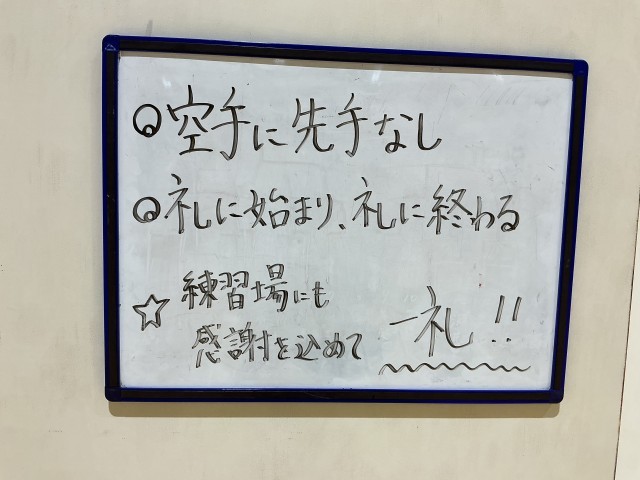 ◎空手に先手なし
◎礼に始まり、礼に終わる
☆練習場にも
感謝を込めて
一礼!!